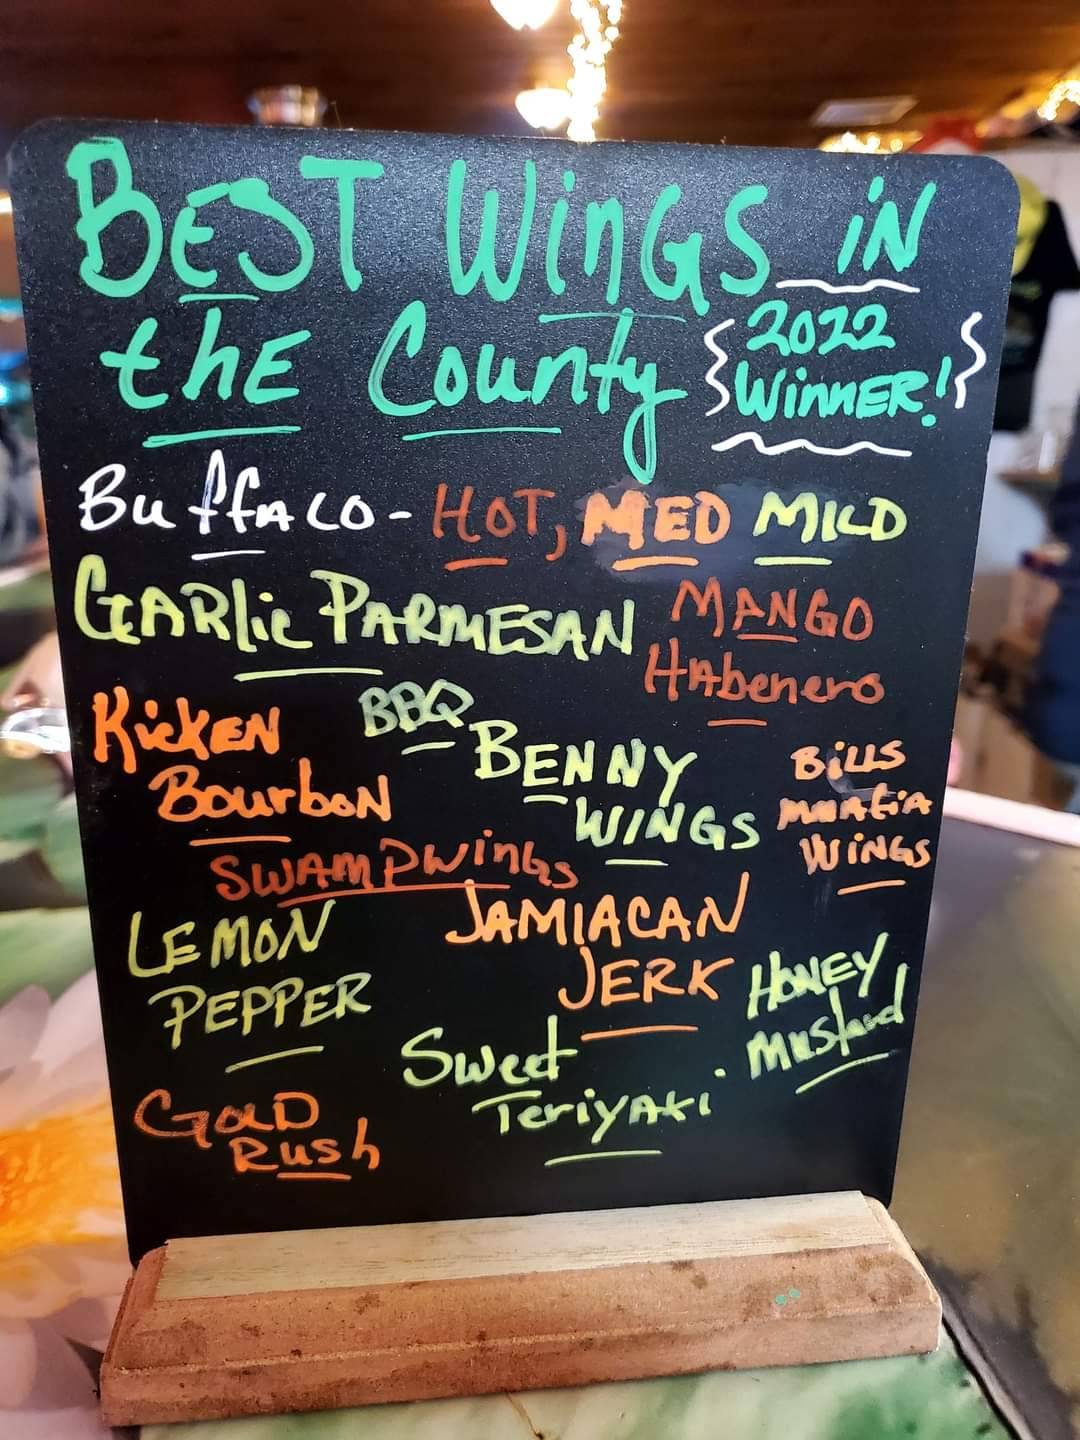 BEST WINGS in
the County {2022
WinnER!}
Buffalo - HOT, MED MILD
GARlic PARMESAN
MANGO
HAbenero
KickEN
BourboN
BBQ
BENNY
WINGS
BillS
MMAfia
WINGS
SWAMPWings
LEMON
PEPPER
JAMIACAN
JERK
HONEY
Mustard
Sweet
Teriyaki
GOLD
Rush